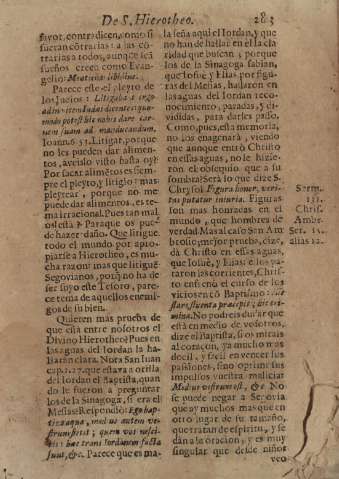 De S. Hierotheo. 283
favor, contradicen, como si
fueran cótrarias: a las có-
trarias a todos, aunque seá
sueños creen como Evan-
gelio:
Parece este el pleyto de
los Iudios: Litigabant ergo
Iudæi
modo potest hic nobis dare car-
nem suam ad manducandum,
Ioann. 6. 51. Litigar, porque
no les pueden dar alimen-
tos, aveislo visto hasta oy?
Por sacar alimẽtos es siem-
pre el pleyto, y litigio: mas
pleytear, porque no me
puede dar alimentos, es te-
ma irracional. Pues tan mal
os está? Para que os pue-
de hazer daño. Que litigue
todo el mundo por apro-
piarse a Hierotheo, es mu-
cha razon: mas que litiguẽ
Segovianos, porq̃ no ha de
ser suyo este Tesoro, pare-
ce tema de aquellos enemi-
gos de su bien.
Quieren mas prueba de
que está entre nosotros el
Divino Hierotheo? Pues en
las aguas del Iordan la ha-
llarán clara. Nota San Iuan
cap. 1. 27. que estava a orilla
del Iordan el Baptista, quan
do le fueron a preguntar
los de la Sinagoga, si era el
Messias: Respondió: Ego bap-
tizo in aqua, medius autem ve-
strum stetit; quem vos nesci-
tis: hæc trans Iordanem facta
sunt, &c. Parece que es ma-
la seña aqui el Iordan, y que
no han de hallar en él la cla-
ridad que buscan; porque
los de la Sinagoga sabian,
que Iosue y Elias por figu-
ras del Mesias, hallaron en
las aguas del Iordan reco-
nocimiento, paradas, y di-
vididas, para darles passo.
Como, pues, esta memoria,
no los enagenará, viendo
que aunque entró Christo
en essas aguas, no le hizie-
ron el obsequio que a su
sombra? Será lo que dize S.
Chrysol. Figura honor, veri-
tas putatur iniuria. Figuras
son mas honradas en el
mundo, que hombres de
verdad. Mas al caso San Am-
brosio; mejor prueba, dize,
dà Christo en essas aguas,
que Iosue, y Elias: ellos pa-
raron las corrientes, Chris-
to
vicios en có Baptismo:
No podreis dudar que
está en medio de vosotros,
dize el Baptista, si os mirais
al coraçon, ya mucho mas
docil, y facil en vencer sus
passiones, sino oprimis sus
impulsos vuestra malicia:
Medius vestrum est, &c. No
se puede negar a Segovia
que ay muchos mas que en
otro lugar de su tamaño,
que tratan de espiritu, y se
dan a la oracion, y es muy
singular que desde niños
veo
Serm.
Chris.
Ambr.
Ser.
alias 22.